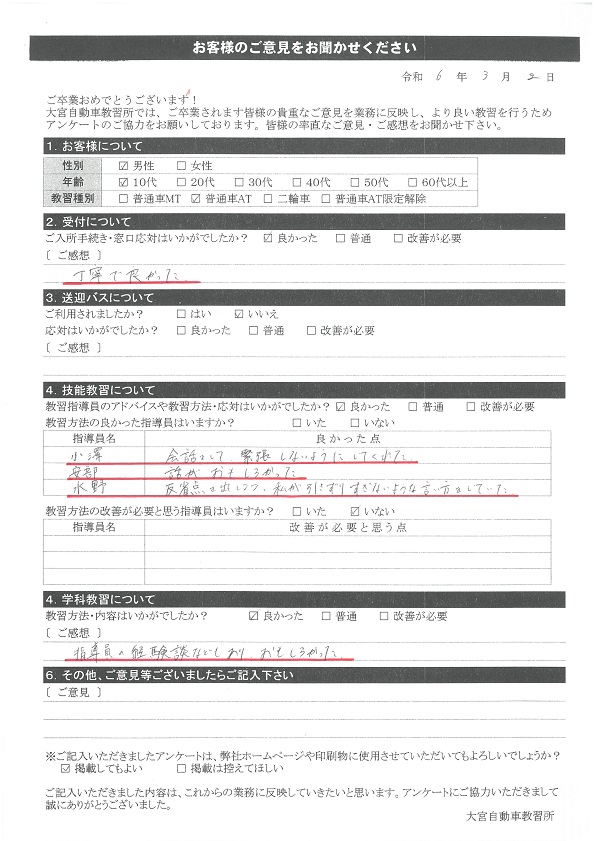 お客様のご意見をお聞かせください
令和 6 年 3 月 2 日
ご卒業おめでとうございます!
大宮自動車教習所では、ご卒業されます皆様の貴重なご意見を業務に反映し、より良い教習を行うため
アンケートのご協力をお願いしております。皆様の率直なご意見・ご感想をお聞かせ下さい。
1. お客様について
性別 ☑ 男性 □ 女性
年齢 ☑ 10代 □ 20代 □ 30代 □ 40代 □ 50代 □ 60代以上
教習種別 □ 普通車MT ☑ 普通車AT □ 二輪車 □ 普通車AT限定解除
2. 受付について
ご入所手続き・窓口応対はいかがでしたか? ☑ 良かった □ 普通 □ 改善が必要
〔 ご感想 〕
丁寧で良かった
3. 送迎バスについて
ご利用されましたか? □ はい ☑ いいえ
応対はいかがでしたか? □ 良かった □ 普通 □ 改善が必要
〔 ご感想 〕
4. 技能教習について
教習指導員のアドバイスや教習方法・応対はいかがでしたか? ☑ 良かった □ 普通 □ 改善が必要
教習方法の良かった指導員はいますか? □ いた □ いない
指導員名 良かった点
小澤 会話をして 緊張しないようにしてくれた
安部 話がおもしろかった
水野 反省点を出しつつ、私が引きずりすぎないような言い方をしていた
教習方法の改善が必要と思う指導員はいますか? □ いた ☑ いない
指導員名 改善が必要と思う点
4. 学科教習について
教習方法・内容はいかがでしたか? ☑ 良かった □ 普通 □ 改善が必要
〔 ご感想 〕
指導員の経験談などもあり、おもしろかった
6. その他、ご意見等ございましたらご記入下さい
〔 ご意見 〕
※ご記入いただきましたアンケートは、弊社ホームページや印刷物に使用させていただいてもよろしいでしょうか?
☑ 掲載してもよい □ 掲載は控えてほしい
ご記入いただきました内容は、これからの業務に反映していきたいと思います。アンケートにご協力いただきまして
誠にありがとうございました。
大宮自動車教習所